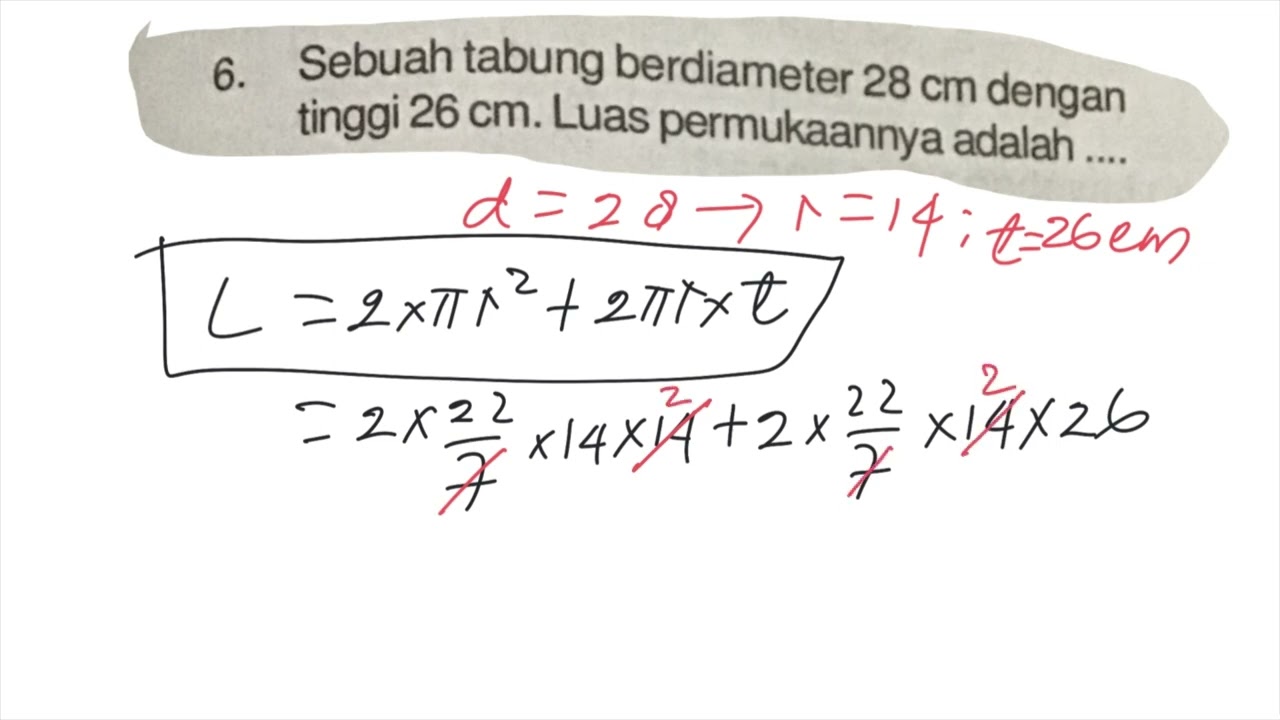 6. Sebuah tabung berdiameter 28 cm dengan
tinggi 26 cm. Luas permukaannya adalah ....
d = 28 → r = 14 ; t = 26 cm
L = 2 × πr² + 2πr × t
= 2 × 22/7 × 14 × 14 2 + 2 × 22/7 × 14 2 × 26